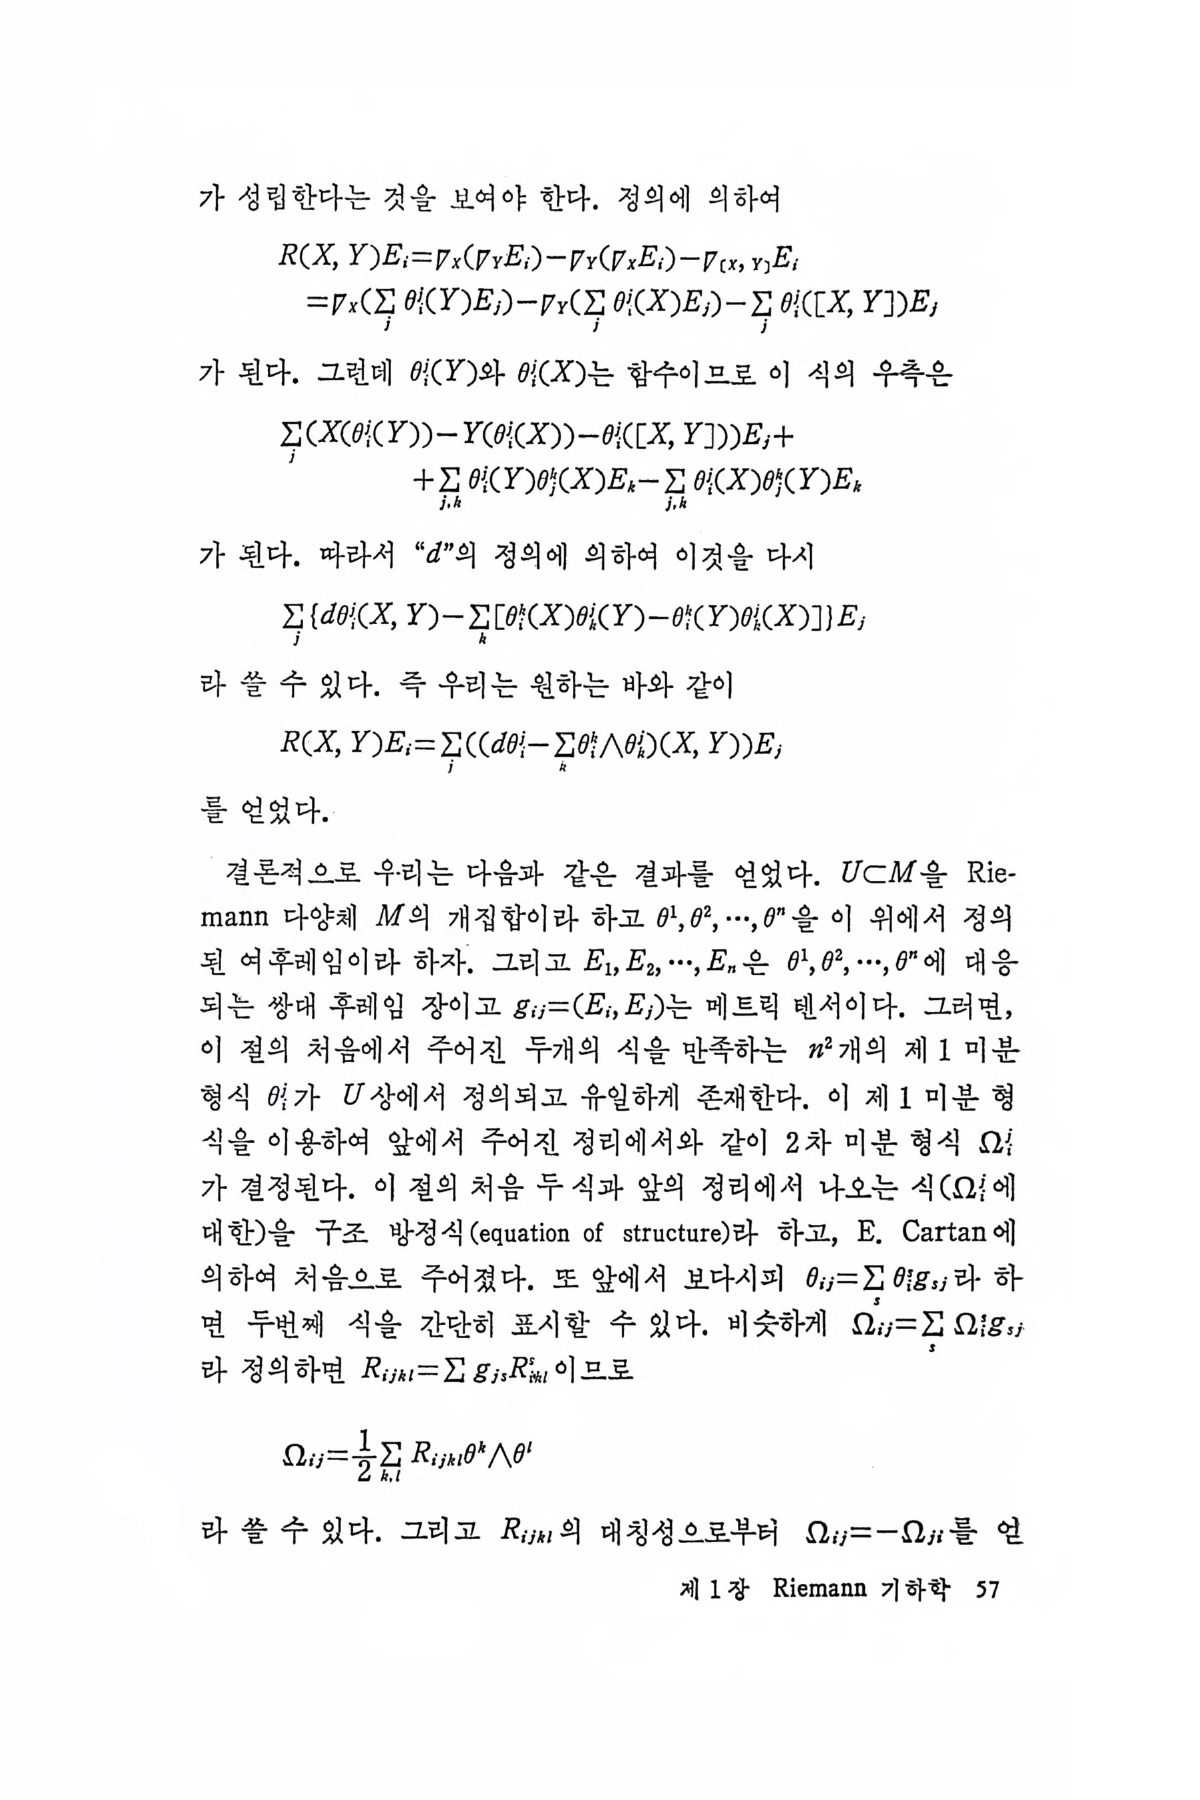 가 성립한다는 것을 보여야 한다. 정의에 의하여
R(X, Y)Eᵢ=∇_X(∇_Y Eᵢ)−∇_Y(∇_X Eᵢ)−∇_{[X, Y]}Eᵢ
=∇_X(∑_j θᵢʲ(Y)Eⱼ)−∇_Y(∑_j θᵢʲ(X)Eⱼ)−∑_j θᵢʲ([X, Y])Eⱼ
가 된다. 그런데 θᵢʲ(Y)와 θᵢʲ(X)는 함수이므로 이 식의 우측은
∑_j(X(θᵢʲ(Y))−Y(θᵢʲ(X))−θᵢʲ([X, Y]))Eⱼ+
+∑_{j,k} θᵢʲ(Y)θⱼᵏ(X)Eₖ−∑_{j,k} θᵢʲ(X)θⱼᵏ(Y)Eₖ
가 된다. 따라서 “d”의 정의에 의하여 이것을 다시
∑_j{dθᵢʲ(X, Y)−∑_k[θᵢᵏ(X)θₖʲ(Y)−θᵢᵏ(Y)θₖʲ(X)]}Eⱼ
라 쓸 수 있다. 즉 우리는 원하는 바와 같이
R(X, Y)Eᵢ=∑_j((dθᵢʲ−∑_kθᵢᵏ∧θₖʲ)(X, Y))Eⱼ
를 얻었다.
결론적으로 우리는 다음과 같은 결과를 얻었다. U⊂M을 Rie-
mann 다양체 M의 개집합이라 하고 θ¹, θ², ⋯, θⁿ을 이 위에서 정의
된 여후레임이라 하자. 그리고 E₁, E₂, ⋯, Eₙ은 θ¹, θ², ⋯, θⁿ에 대응
되는 쌍대 후레임 장이고 gᵢⱼ=(Eᵢ, Eⱼ)는 메트릭 텐서이다. 그러면,
이 절의 처음에서 주어진 두개의 식을 만족하는 n²개의 제 1 미분
형식 θᵢʲ가 U상에서 정의되고 유일하게 존재한다. 이 제 1 미분 형
식을 이용하여 앞에서 주어진 정리에서와 같이 2차 미분 형식 Ωᵢʲ
가 결정된다. 이 절의 처음 두 식과 앞의 정리에서 나오는 식(Ωᵢʲ에
대한)을 구조 방정식(equation of structure)라 하고, E. Cartan에
의하여 처음으로 주어졌다. 또 앞에서 보다시피 θᵢⱼ=∑_s θᵢˢgₛⱼ라 하
면 두번째 식을 간단히 표시할 수 있다. 비슷하게 Ωᵢⱼ=∑_s Ωᵢˢgₛⱼ
라 정의하면 Rᵢⱼₖₗ=∑ gⱼₛRˢᵢₖₗ이므로
Ωᵢⱼ=½∑_{k,l} Rᵢⱼₖₗθᵏ∧θˡ
라 쓸 수 있다. 그리고 Rᵢⱼₖₗ의 대칭성으로부터 Ωᵢⱼ=−Ωⱼᵢ를 얻
제 1 장 Riemann 기하학 57